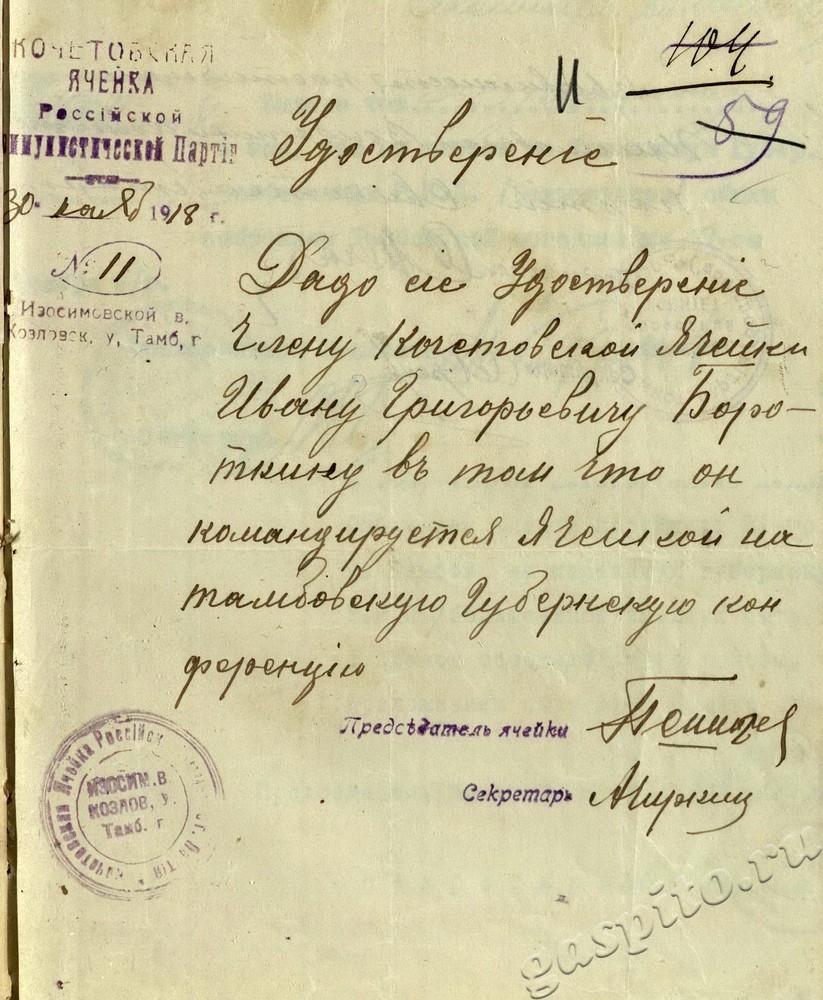 КОЧЕТОВСКАЯ
ЯЧЕЙКА
Россійской
Коммунистической Партіи
30 нояб 1918 г.
№ 11
Изосимовской в.
Козловск, у, Тамб, г
11
104
59
Удостверение
Дадо сие Удостверение
Члену Кочетовской Ячейки
Ивану Григорьевичу Боро-
ткину въ том что он
командируется Ячейкой на
тамбовскую Губернскую кон
ференцию
Предсѣдатель ячейки
Секретарь
Кочетовская Ячейка Россійск
ИЗОСИМ. В.
КОЗЛОВ, У.
Тамб. г
gaspito.ru